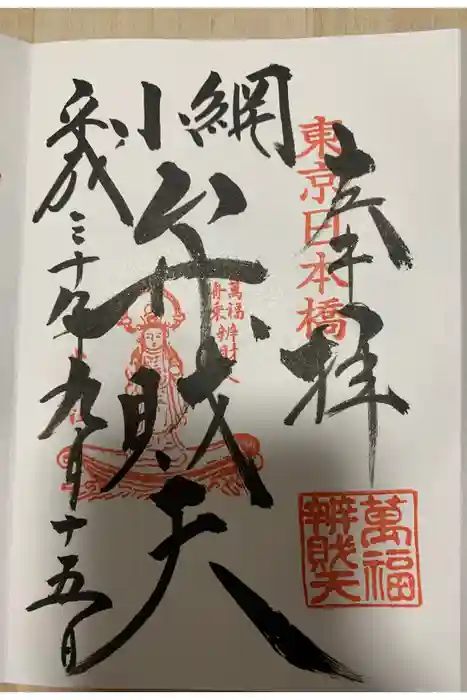 奉拝
東京日本橋
小網
弁財天
萬福
舟乗
辨財天
平成三十年九月十五日
萬福
辨財天